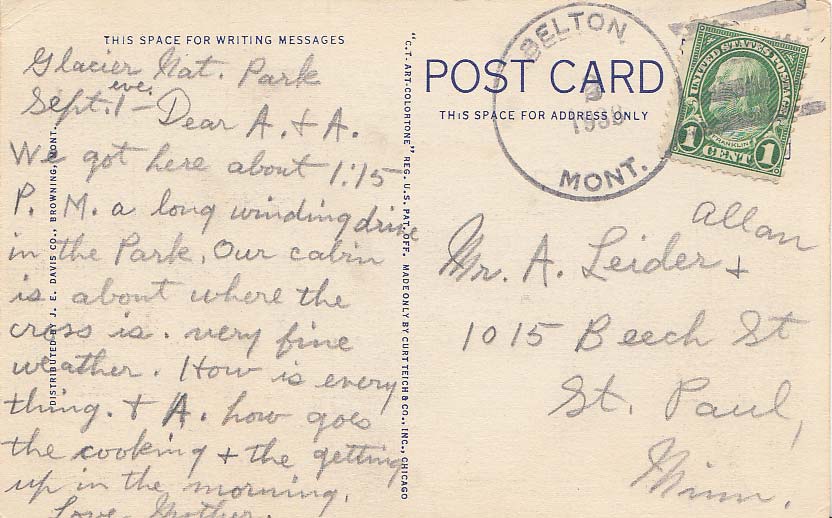 THIS SPACE FOR WRITING MESSAGES
Glacier Nat. Park
eve.
Sept. 1 - Dear A. + A.
We got here about 1:15
P. M. a long winding drive
in the Park. Our cabin
is about where the
cross is. very fine
weather. How is every
thing. + A. how goes
the cooking + the getting
up in the morning.
Love Mother.
DISTRIBUTED BY J. E. DAVIS CO., BROWNING, MONT.
"C.T. ART-COLORTONE" REG. U.S. PAT. OFF. MADE ONLY BY CURT TEICH & CO., INC., CHICAGO
POST CARD
THIS SPACE FOR ADDRESS ONLY
BELTON
MONT.
UNITED STATES POSTAGE
FRANKLIN
1 CENT 1
Allan
Mr. A. Leider +
1015 Beech St
St. Paul,
Minn.